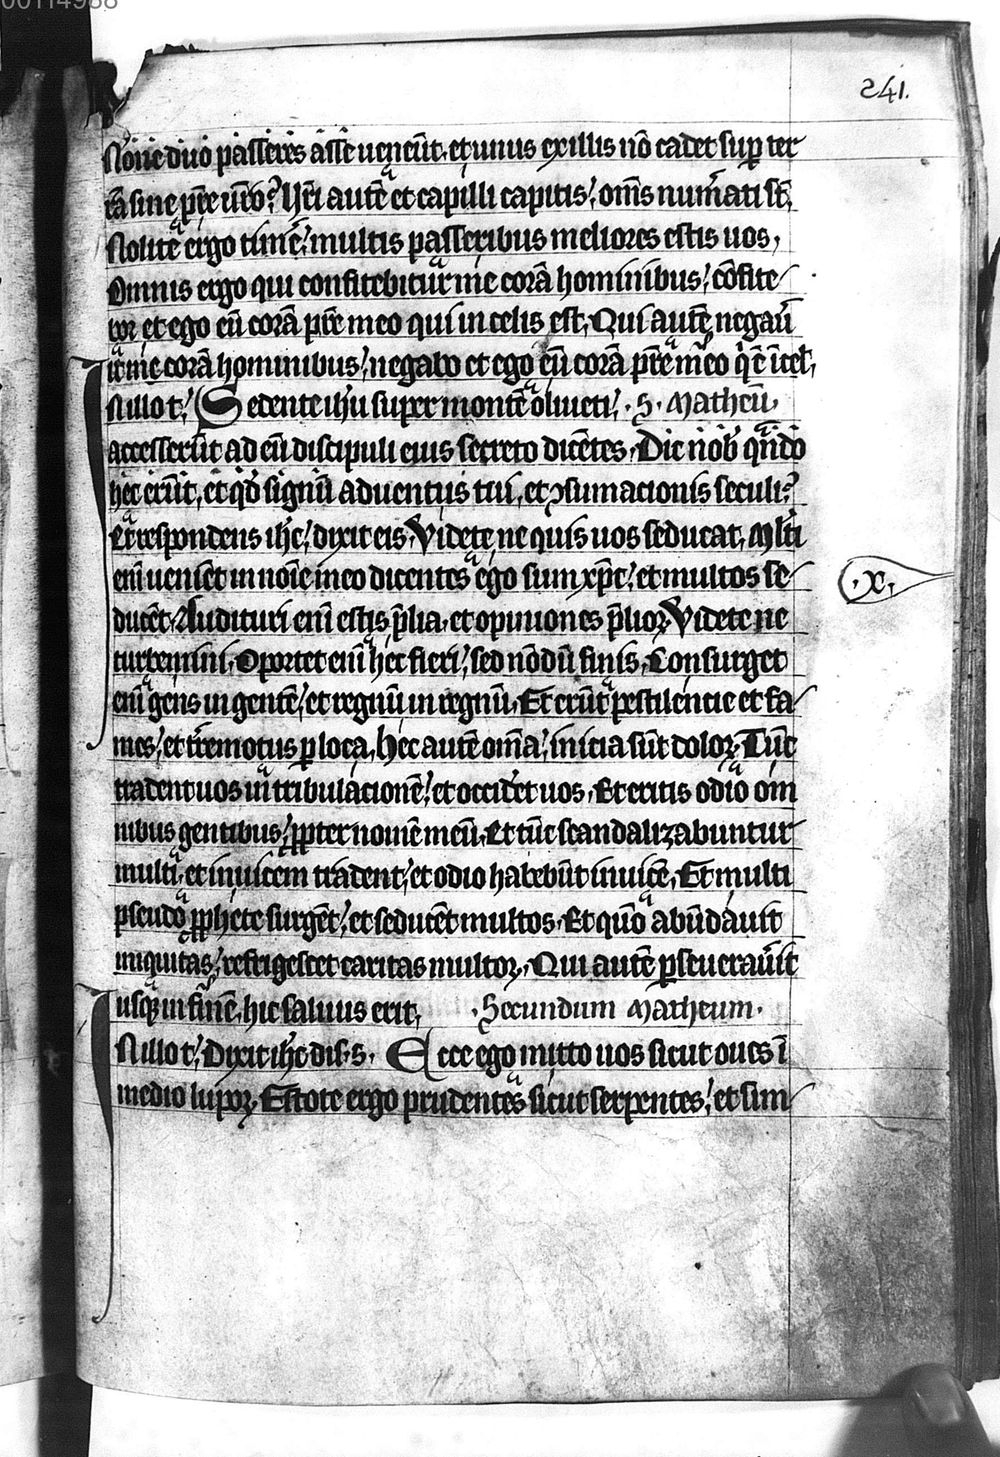 00114988
241.
Nōne duo passeres asse ueneūt, et unus ex illis nō cadet sup ter
rā sine pr̄e ūro? Ur̄i autē et capilli capitis, om̄s num̄ati st̄.
Nolite ergo timē̄, multis passeribus meliores estis uos,
Omnis ergo qui confitebitur me corā hominibus, cōfite
bor et ego eū corā pr̄e meo qui in celis est, Qui autē negau̅
it me corā hominibus, negabo et ego eū corā pr̄e meo q̄ ē ī cel,
In illo t̄, Sedente ih̄u super montē oliueti, . S. Matheū.
accesserūt ad eū discipuli eius secreto dicētes, Dic nob̄ qn̄do
hec erūt, et qd̄ signū aduentus tui, et ꝯsumacionis seculi?
Et respondens ih̄c, dixit eis, Videte ne quis uos seducat, Ml̄ti
.x.
enī ueniēt in noīe meo dicentes ego sum xp̄c, et multos se
ducēt, Audituri enī estis p̄lia, et opiniones p̄lioꝝ, Videte ne
turbemini, Oportet enī hec fieri, sed nōdū finis, Consurget
enī gens in gentē, et regnū in regnū, Et erūt pestilencie et fa
mes, et t̄remotus ꝑ loca, Hec autē om̄a, inicia sūt doloꝝ, Tūc
tradent uos in tribulacionē, et occidēt uos, Et eritis odio om
nibus gentibus, ꝓpter nomē meū, Et tūc scandalizabuntur
multi, et inuicem tradent, et odio habebūt inuicē, Et multi
pseudo ꝓphete surgēt, et seducēt multos, Et qm̄o abūdauit
iniquitas, refrigescet caritas multoꝝ, Qui autē ꝑseuerau̅it
usq̄ in finē, hic saluus erit, . Secundum Matheum.
In illo t̄, Dixit ih̄c dis. s. Ecce ego mitto uos sicut oues ī
medio lupoꝝ, Estote ergo prudentes sicut serpentes, et sim